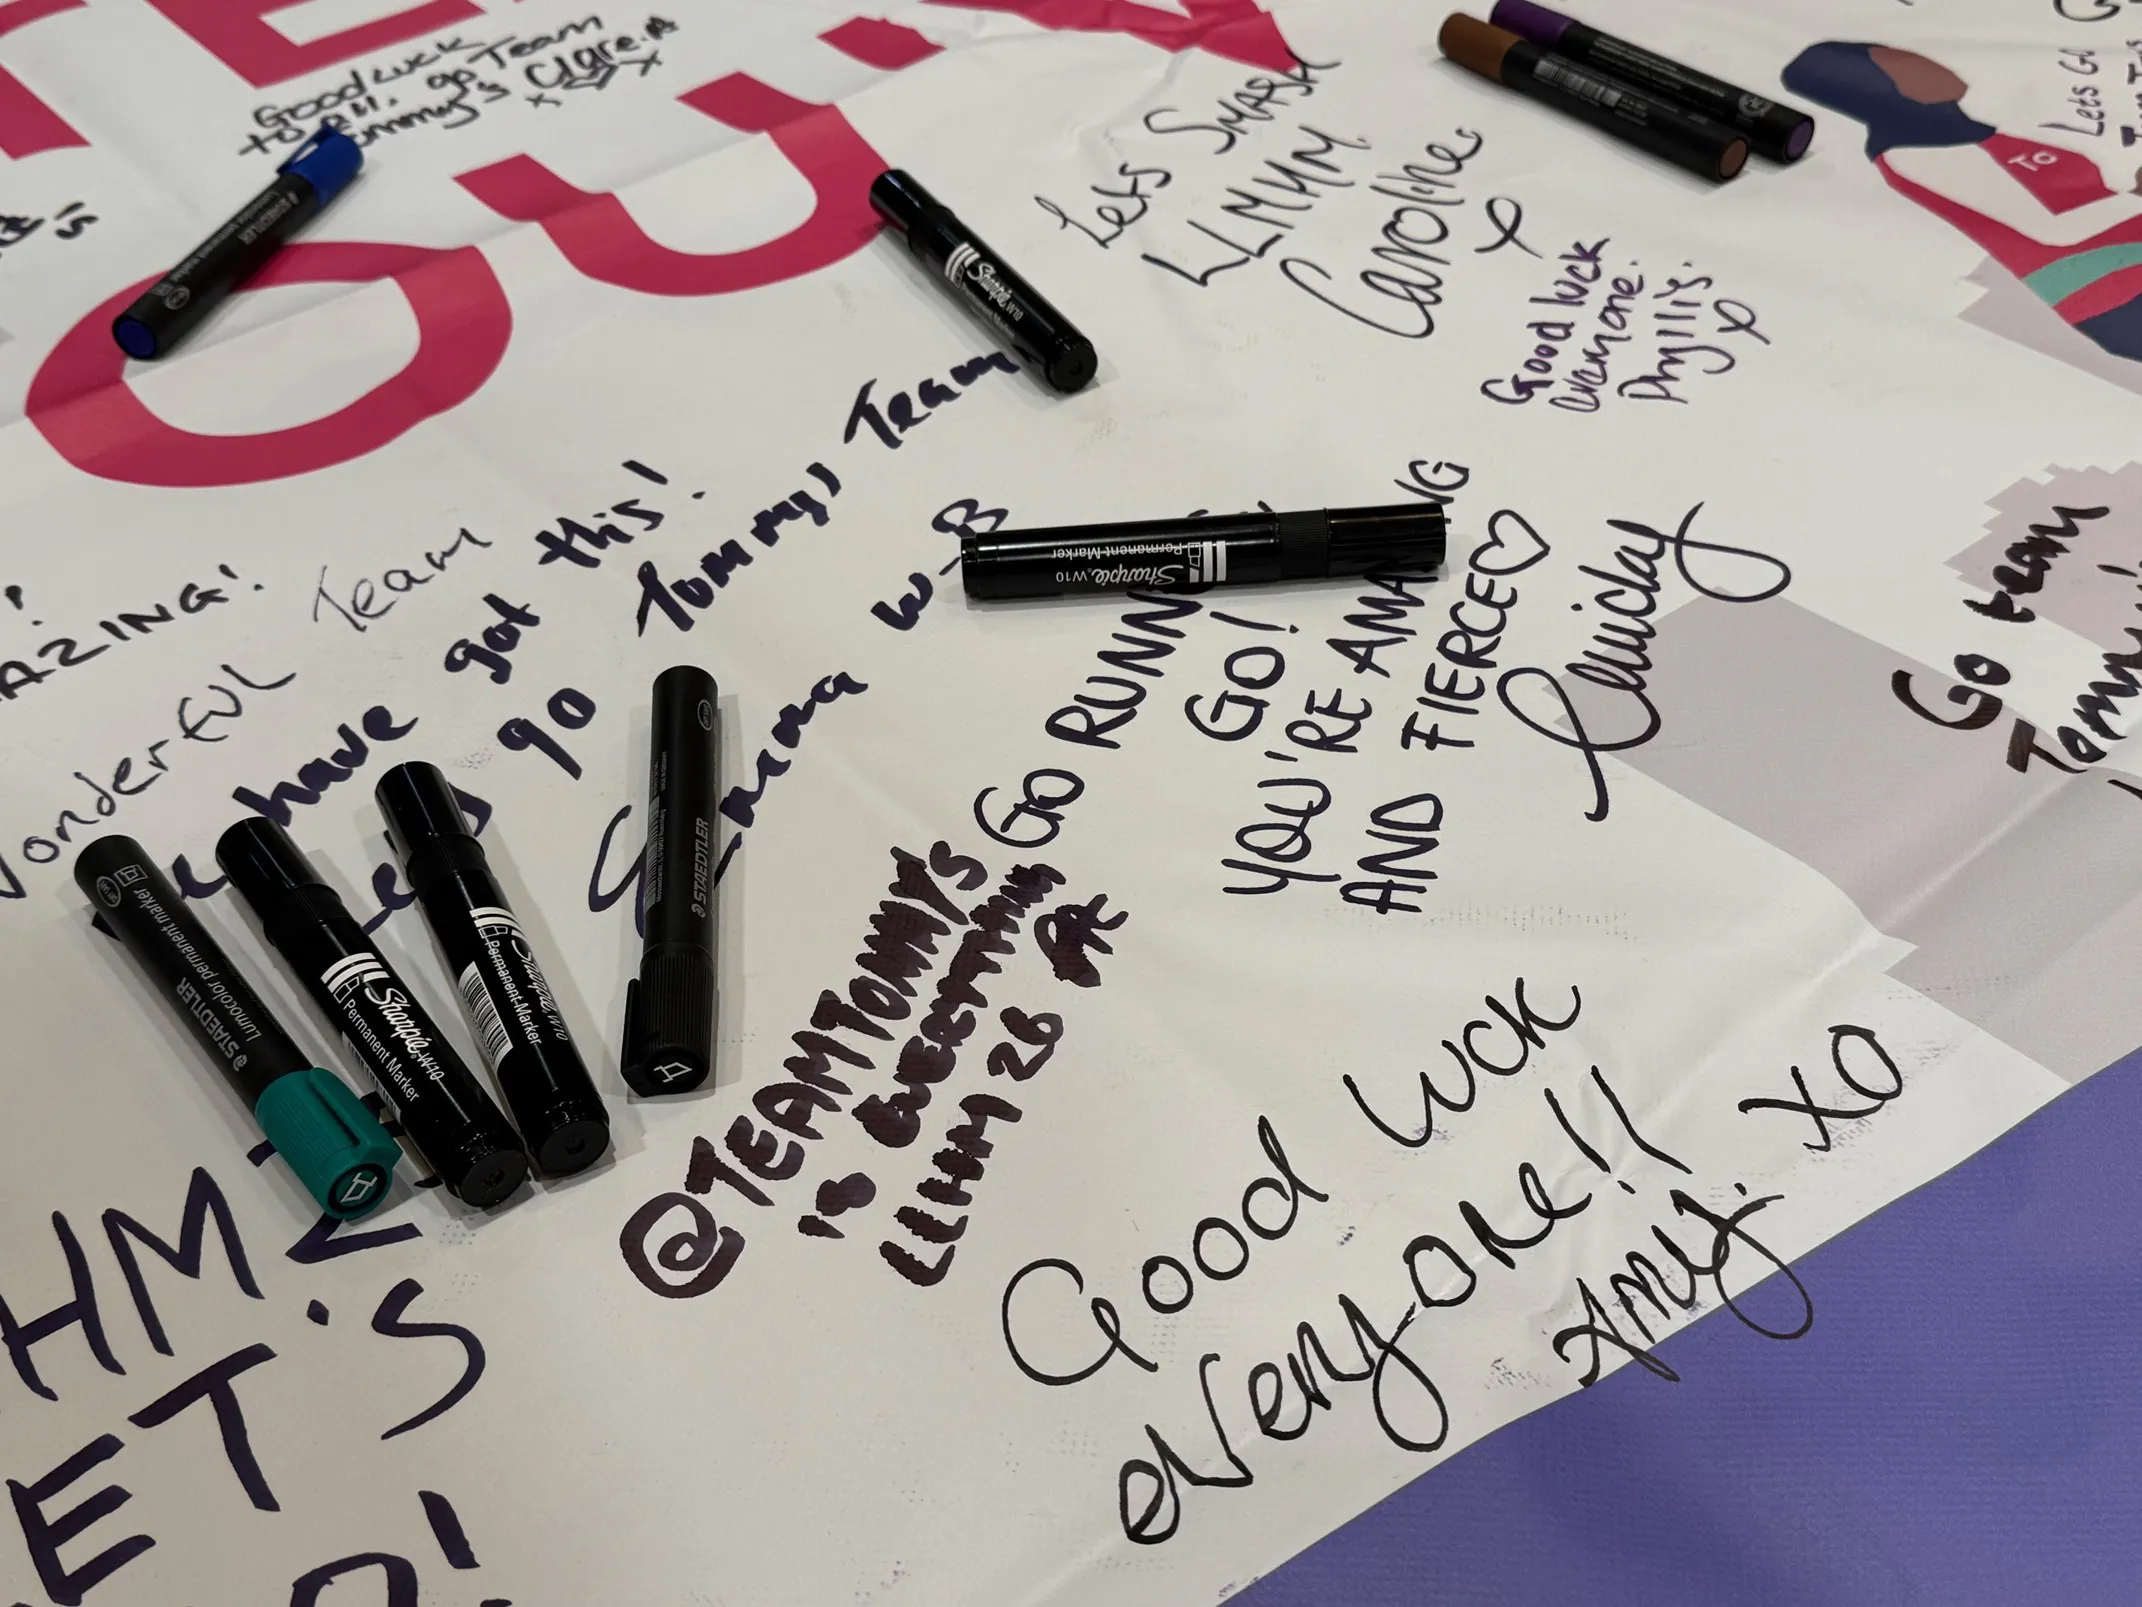 Good Luck
to all. go Team
Tommy's Clare.
x x
Lets Smash
LLHM
Caroline
x
Good luck
everyone.
Phyllis.
x
Lets Go
TO
AZING!
Wonderful Team
We have got this!
Lets go Tommys Team
Emma W-B
GO RUNN
GO!
YOU'RE AMA NG
AND FIERCE♡
Go team
Tommy's
@TEAMTOMMYS
is everything
LLHM 26
Good luck
everyone!!
Amy. XO
HM
LET'S
GO!
STAEDTLER
permanent marker
Sharpie W10
Sharpie W10
Permanent Marker
STAEDTLER
Lumocolor permanent marker
Sharpie W10
Permanent Marker
Sharpie W10
Permanent Marker
STAEDTLER